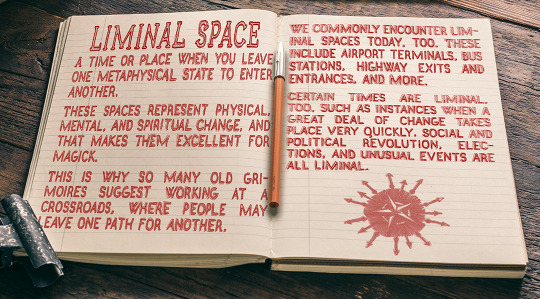 LIMINAL SPACE
A TIME OR PLACE WHEN YOU LEAVE
ONE METAPHYSICAL STATE TO ENTER
ANOTHER.
THESE SPACES REPRESENT PHYSICAL,
MENTAL, AND SPIRITUAL CHANGE, AND
THAT MAKES THEM EXCELLENT FOR
MAGICK.
THIS IS WHY SO MANY OLD GRI-
MOIRES SUGGEST WORKING AT A
CROSSROADS, WHERE PEOPLE MAY
LEAVE ONE PATH FOR ANOTHER.
WE COMMONLY ENCOUNTER LIM-
INAL SPACES TODAY, TOO. THESE
INCLUDE AIRPORT TERMINALS, BUS
STATIONS, HIGHWAY EXITS AND
ENTRANCES, AND MORE.
CERTAIN TIMES ARE LIMINAL,
TOO, SUCH AS INSTANCES WHEN A
GREAT DEAL OF CHANGE TAKES
PLACE VERY QUICKLY. SOCIAL AND
POLITICAL REVOLUTION, ELEC-
TIONS, AND UNUSUAL EVENTS ARE
ALL LIMINAL.